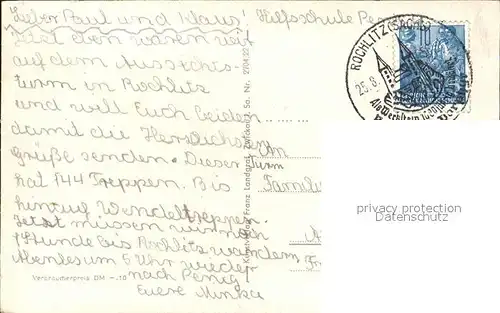 Lieber Paul und Klaus! Hilfsschule Pe
Jetzt eben waren wir
auf dem Aussichts-
turm in Rochlitz
und will Euch beiden
damit die Herzlichsten
Grüße senden. Dieser Turm
hat 144 Treppen. Bis
hinauf Wendeltreppen.
Jetzt müssen wir noch
1 Stunde bis Rochlitz wandern
Abends um 6 Uhr wieder
nach Penig
Eure Minka
An
Famili
Verbraucherpreis DM —.10
Kunstverlag Franz Landgraf, Zwickau i. Sa. Nr. 2704 22
ROCHLITZ (SACHS)
25.8.
10
privacy protection
Datenschutz